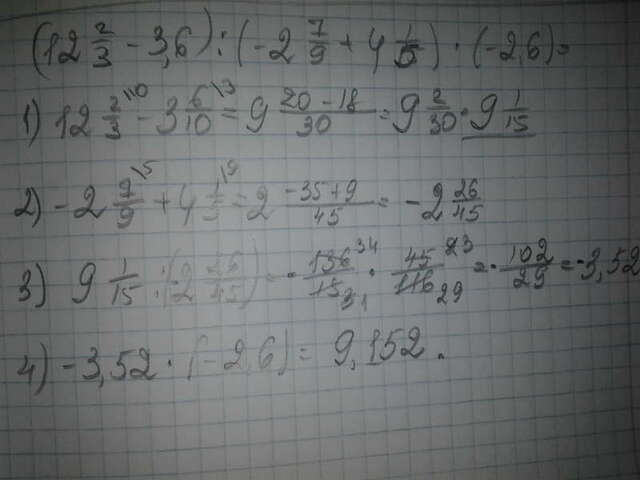 (12 2/3 - 3,6) : (-2 7/9 + 4 1/5) · (-2,6) =
1) 12 2/3 \10 - 3 6/10 \3 = 9 20-18/30 = 9 2/30 = 9 1/15
2) -2 7/9 \5 + 4 1/5 \9 = 2 -35+9/45 = -2 26/45
3) 9 1/15 : (-2 26/45) = - 136 34/15 1 · 45 3/116 29 = - 102/29 = -3,52
4) -3,52 · (-2,6) = 9,152.